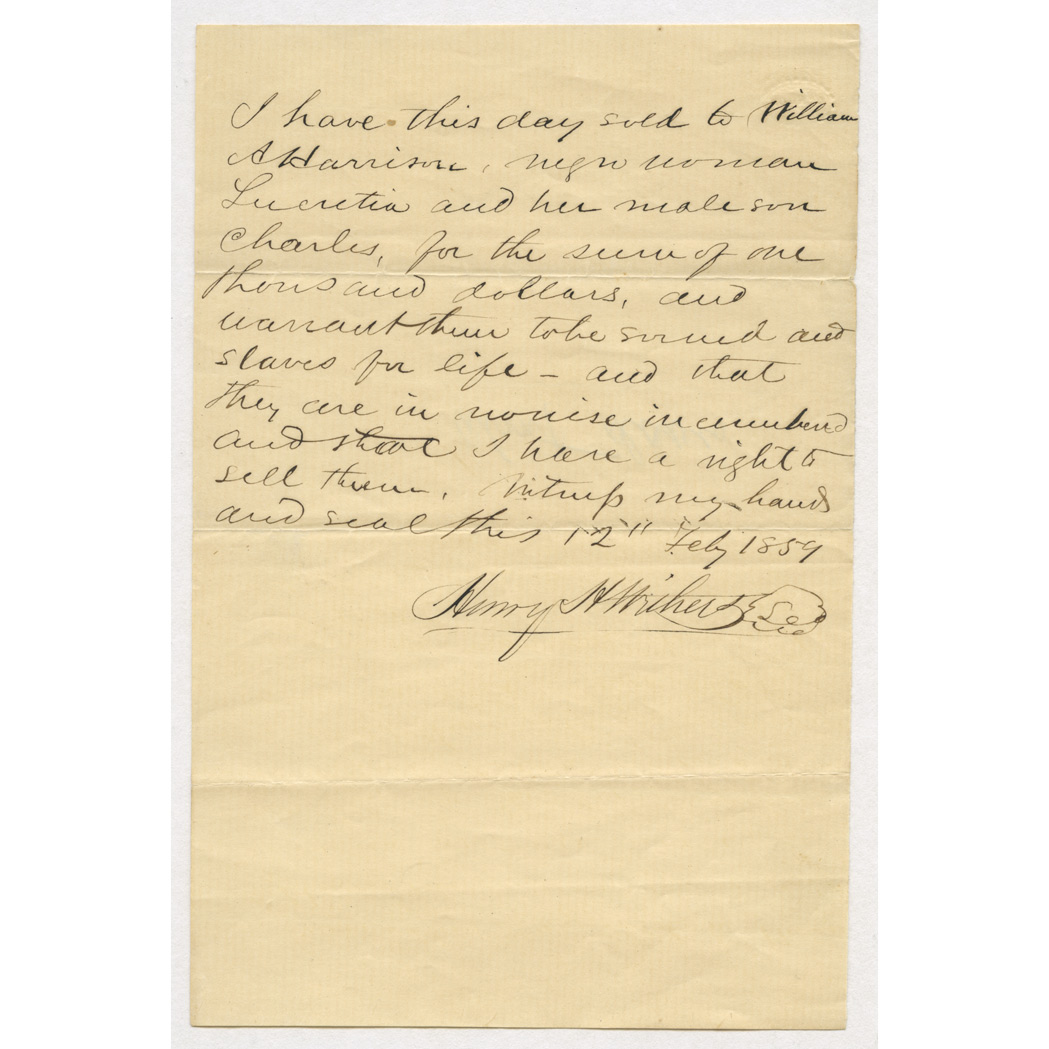 I have this day sold to William
A Harrison, negro woman
Lucretia and her male son
Charles, for the sum of one
thousand dollars, and
warrant them to be sound and
slaves for life – and that
they are in nowise incumberd
and that I have a right to
sell them. Witness my hand
and seal this 12" Feby 1859
Henry H Withers Seal